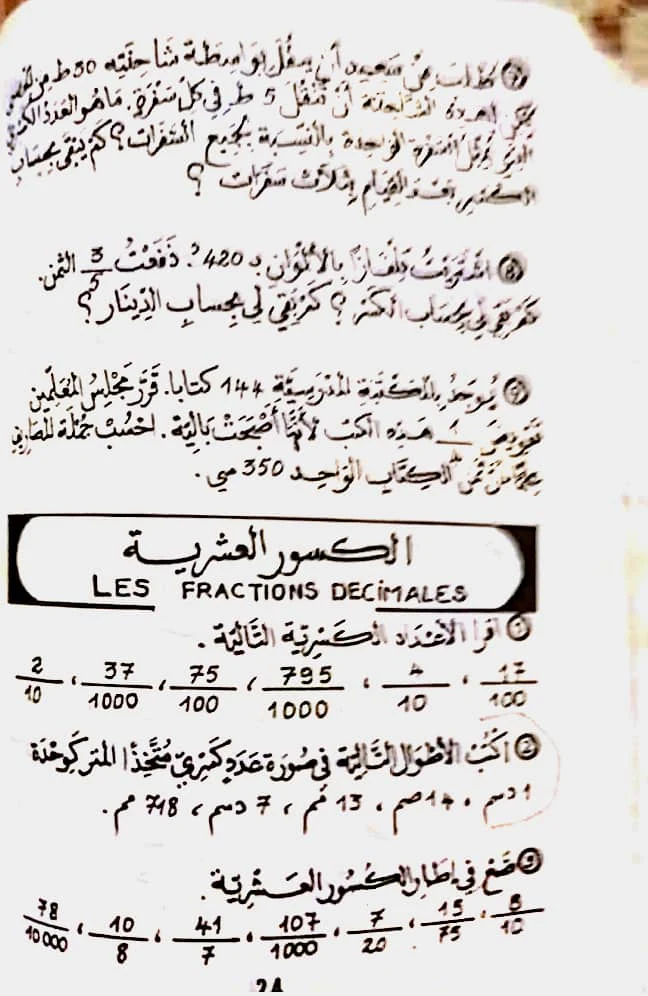 ⑦ طلب من سعيد أن ينقل بواسطة شاحنته 30 ط من
يمكن لهذه الشاحنة أن تنقل 5 ط في كلّ سفرة. ما هو العدد الكسريّ
الذي يمثّل السفرة الواحدة بالنّسبة لجميع السّفرات؟ كم يبقى بحساب
الكسر بعد القيام بثلاث سفرات ؟
⑧ اشتريت تلفازًا بالألوان بـ 420 د. دَفَعْتُ 3/ الثمن.
كم بقي لي بحساب الكسر ؟ كم بقي لي بحساب الدِّينَار ؟
⑨ يُوجد بالمكتبة المدرسيّة 144 كتابا. قَرَّرَ مَجْلِسُ المُعَلِّمِين
تعويض 1/ هذه الكتب لأنّها أَصْبَحَتْ بَالِيَة. احْسُبْ جُمْلَة المصاريف
علما أنّ ثمن الكِتَاب الوَاحِد 350 مي.
الكسور العشرية
LES FRACTIONS DECIMALES
① اقرأ الأعْدَاد الكَسْرِيّة التَّالِيَة .
17/100 ، 4/10 ، 795/1000 ، 75/100 ، 37/1000 ، 2/10
② اكْتُبْ الأطْوَال التَّالِيَة فِي صُورَة عَدَدٍ كَسْرِيٍّ مُتَّخِذًا المتر كَوِحْدَة
1 دسم ، 14 صم ، 13 مم ، 7 دسم ، 718 مم .
③ ضَعْ فِي إطَارٍ الكُسُور العَشْرِيّة.
8/10 ، 15/75 ، 7/20 ، 107/1000 ، 41/7 ، 10/8 ، 78/10000
24